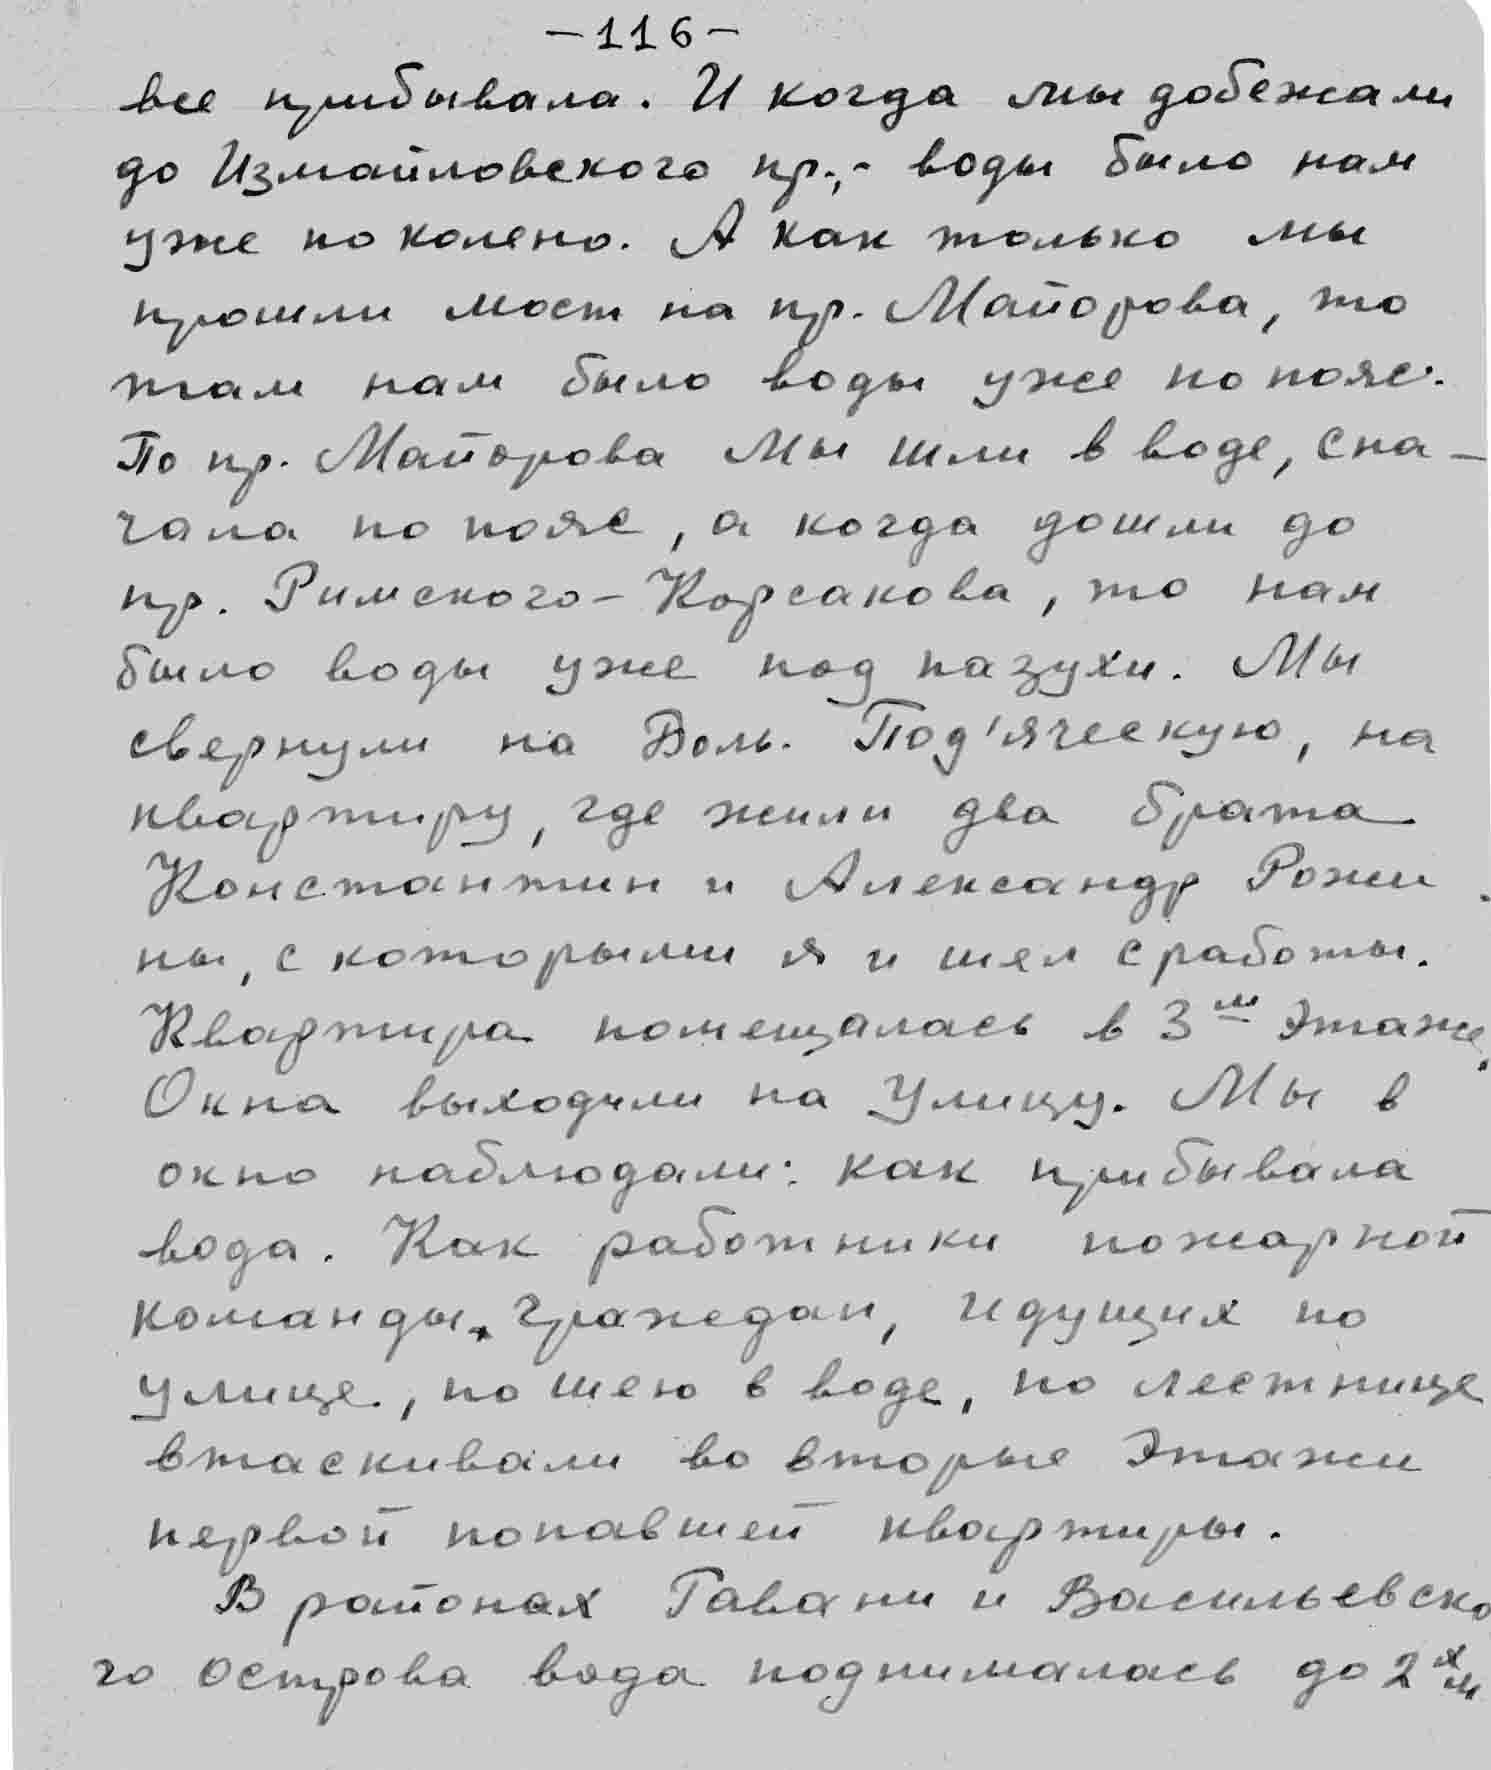 -116-
все прибывала. И когда мы добежали
до Измайловского пр.,- воды было нам
уже по колено. А как только мы
прошли мост на пр. Майорова, то
там нам было воды уже по пояс.
По пр. Майорова мы шли в воде, сна-
чала по пояс, а когда дошли до
пр. Римского-Корсакова, то нам
было воды уже под пазухи. Мы
свернули на Боль. Под'яческую, на
квартиру, где жили два брата
Константин и Александр Рожи
ны, с которыми я и шел с работы.
Квартира помещалась в 3м этаже.
Окна выходили на улицу. Мы в
окно наблюдали: как прибывала
вода. Как работники пожарной
команды, граждан, идущих по
улице, по шею в воде, по лестнице
втаскивали во вторые этажи
первой попавшей квартиры.
В районах Гавани и Васильевско
го острова вода поднималась до 2х м